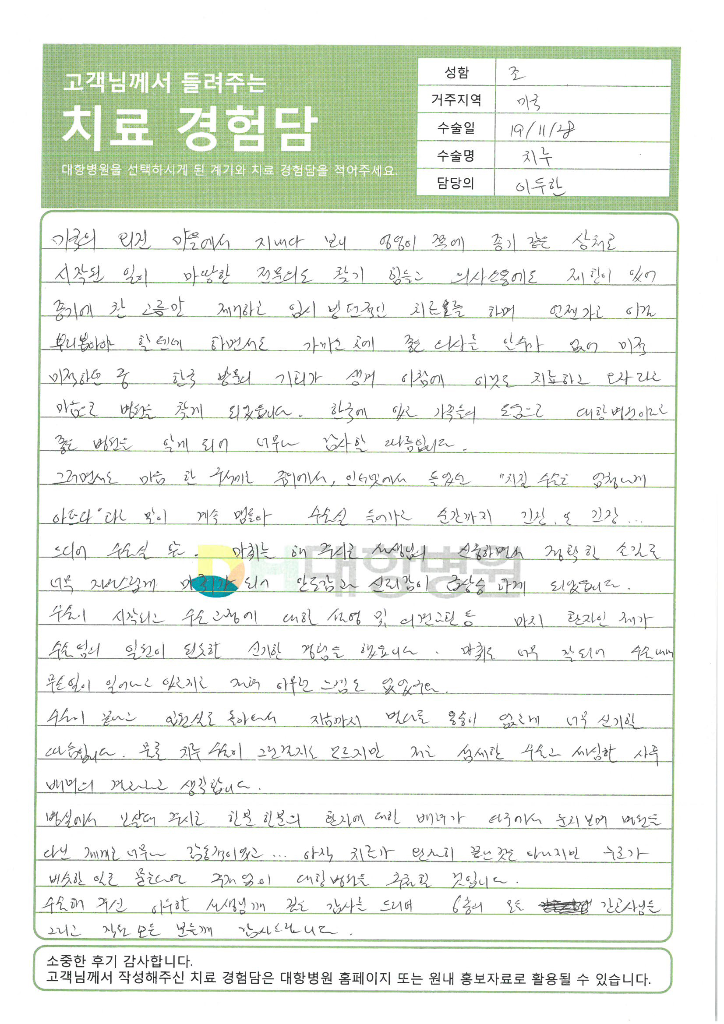 고객님께서 들려주는
치료 경험담
대항병원을 선택하시게 된 계기와 치료 경험담을 적어주세요.
성함 조
거주지역 미국
수술일 19/11/28
수술명 치루
담당의 이두한
미국의 외진 마을에서 지내다 보니 엉덩이 쪽에 종기 같은 상처로
시작된 일이 마땅한 전문의도 찾기 힘들고 의사소통에도 제한이 있어
종기에 찬 고름만 제거하고 임시 방편적인 치료를 하며 언젠가는 이걸
할텐데 하면서도 가까운 곳에 좋은 의사를 만날수가 없어 미적
미적하던 중 한국 방문의 기회가 생겨 이참에 이것도 치료하고 오자 라는
마음으로 병원을 찾게 되었습니다. 한국에 있는 가족들의 도움으로 대항병원이라는
좋은 병원을 알게 되어 너무나 감사할 따름입니다.
그러면서도 마음 한 구석에는 주위에서, 인터넷에서 들었던 "치질 수술은 엄청나게
아프다" 라는 말이 계속 맴돌아 수술실 들어가는 순간까지 긴장, 또 긴장...
드디어 수술실 마취를 해 주시는 선생님의 정확한 손길로
너무 자연스럽게 마취가 되어 안도감과 신뢰감이 급상승 하게 되었습니다.
DH대항병원
수술이 시작되고 수술과정에 대한 설명 및 의견교환 등 마치 환자인 제가
수술팀의 일원이 된듯한 신기한 경험을 했습니다. 마취도 너무 잘되어 수술내내
무슨일이 일어나고 있는지도 전혀 아무런 느낌도 없었구요.
수술이 끝나고 입원실로 돌아와서 지금까지 별다른 통증이 없는게 너무 신기할
따름입니다. 물론 치루 수술이 그런건지도 모르지만 저는 섬세한 수술과 세심한 사후
배려의 결과라고 생각합니다.
병실에서 보살펴 주시는 한분 한분의 환자에 대한 배려가 병원을
다닌 제게는 너무나 감동적이었고... 아직 치료가 완전히 끝난것은 아니지만 누군가
비슷한 일로 물으신다면 주저 없이 대항병원을 추천할 것입니다.
수술해 주신 이두한 선생님께 깊은 감사를 드리며 6층의 모든 간호사님들
그리고 직원 모든 분들께 감사드립니다.
소중한 후기 감사합니다.
고객님께서 작성해주신 치료 경험담은 대항병원 홈페이지 또는 원내 홍보자료로 활용될 수 있습니다.